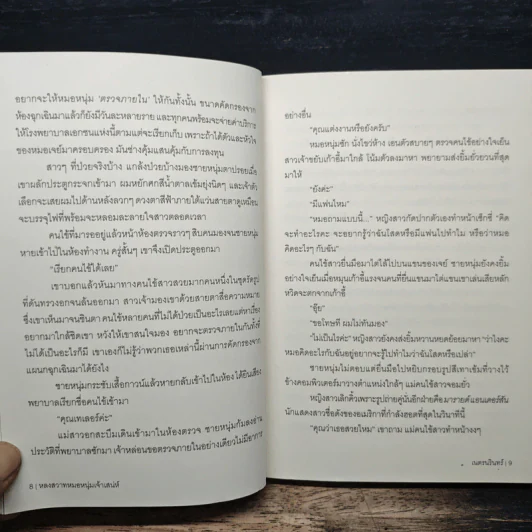 อยากจะให้หมอหนุ่ม 'ตรวจภายใน' ให้กันทั้งนั้น ขนาดคัดกรองจาก
ห้องฉุกเฉินมาแล้วก็ยังมีวันละหลายราย และทุกคนพร้อมจะจ่ายค่าบริการ
ให้โรงพยาบาลเอกชนแห่งนี้ตามแต่จะเรียกเก็บ เพราะถ้าได้ตัวและหัวใจ
ของหมอเจย์มาครอบครอง มันช่างคุ้มแสนคุ้มกับการลงทุน
สาวๆ ที่ป่วยจริงบ้าง แกล้งป่วยบ้างมองชายหนุ่มตาปรอยเมื่อ
เขาผลักประตูกระจกเข้ามา ผมหยักศกสีน้ำตาลเข้มยุ่งนิดๆ และเจ้าตัว
เลือกจะเสยผมไปด้านหลังลวกๆ ดวงตาสีฟ้าภายใต้แว่นสายตาดูเหมือน
จะบรรจุไฟที่พร้อมจะหลอมละลายใจสาวตลอดเวลา
คนไข้ที่มารออยู่แล้วหน้าห้องตรวจราวๆ สิบคนมองจนชายหนุ่ม
หายเข้าไปในห้องทำงาน ครู่สั้นๆ เขาจึงเปิดประตูออกมา
"เรียกคนไข้ได้เลย"
เขาบอกแล้วหันมาทางคนไข้สาวสวยมากคนหนึ่งในชุดรัดรูป
ที่ดันทรวงอกจนล้นออกมา สาวเจ้ามองเขาด้วยสายตาสื่อความหมาย
ซึ่งเขาเห็นมาจนชินตา คนไข้หลายคนที่ไม่ได้ป่วยเป็นอะไรเลยแต่หาเรื่อง
อยากมาใกล้ชิดเขา หวังให้เขาสนใจมอง อยากจะตรวจภายในกันทั้งที่
ไม่ได้เป็นอะไรก็มี เขาเองก็ไม่รู้ว่าพวกเธอเหล่านี้ผ่านการคัดกรองจาก
แผนกฉุกเฉินมาได้ยังไง
ชายหนุ่มกระชับเสื้อกาวน์แล้วหายกลับเข้าไปในห้อง ได้ยินเสียง
พยาบาลเรียกชื่อคนไข้เข้ามา
"คุณเทเลอร์ค่ะ"
แม่สาวอกสะบึมเดินเข้ามาในห้องตรวจ ชายหนุ่มก้มลงอ่าน
ประวัติที่พยาบาลซักมา เจ้าหล่อนขอตรวจภายในอย่างเดียวไม่มีอาการ
8 | หลงสวาทหมอหนุ่มเจ้าเสน่ห์
อย่างอื่น
"คุณแต่งงานหรือยังครับ"
หมอหนุ่มซัก นั่งไขว่ห้าง เอนตัวสบายๆ ตรวจคนไข้อย่างใจเย็น
สาวเจ้าขยับเก้าอี้มาใกล้ โน้มตัวลงมาหา พยายามส่งยิ้มยั่วยวนที่สุด
มาให้
"ยังค่ะ"
"มีแฟนไหม"
"หมอถามแบบนี้..." หญิงสาวกัดปากตัวเองทำหน้าเซ็กซี่ "คิด
จะทำอะไรคะ จะอยากรู้ว่าฉันโสดหรือมีแฟนไปทำไม หรือว่าหมอ
คิดอะไรๆ กับฉัน"
คนไข้สาวยื่นมือมาไต่ไล้ไปบนแขนของเจย์ ชายหนุ่มยังคงยิ้ม
อย่างใจเย็นเมื่อหมุนเก้าอี้แรงจนคนที่ยื่นแขนมาไต่แขนเขาเล่นเสียหลัก
หวิดจะตกจากเก้าอี้
"อุ๊ย"
"ขอโทษที ผมไม่ทันมอง"
"ไม่เป็นไรค่ะ" หญิงสาวยังคงส่งยิ้มหวานหยดย้อยมาหา "ว่าไงคะ
หมอคิดอะไรกับฉันอยู่อยากจะรู้ไปทำไมว่าฉันโสดหรือเปล่า"
ชายหนุ่มไม่ตอบแต่ยื่นมือไปหยิบกรอบรูปสีเทาเข้มที่วางไว้
ข้างคอมพิวเตอร์มาวางตำแหน่งใกล้ๆ แม่คนไข้สาวจอมยั่ว
หญิงสาวเลิกคิ้วเพราะรูปถ่ายคู่นั้นอีกฝ่ายคือมาราย์ค์แอนเดอร์สัน
นักแสดงสาวชื่อดังของอเมริกาที่กำลังฮอตที่สุดในวินาทีนี้
"คุณว่าเธอสวยไหม" เขาถาม แม่คนไข้สาวทำหน้างงๆ
เนตรนรินทร์ | 9